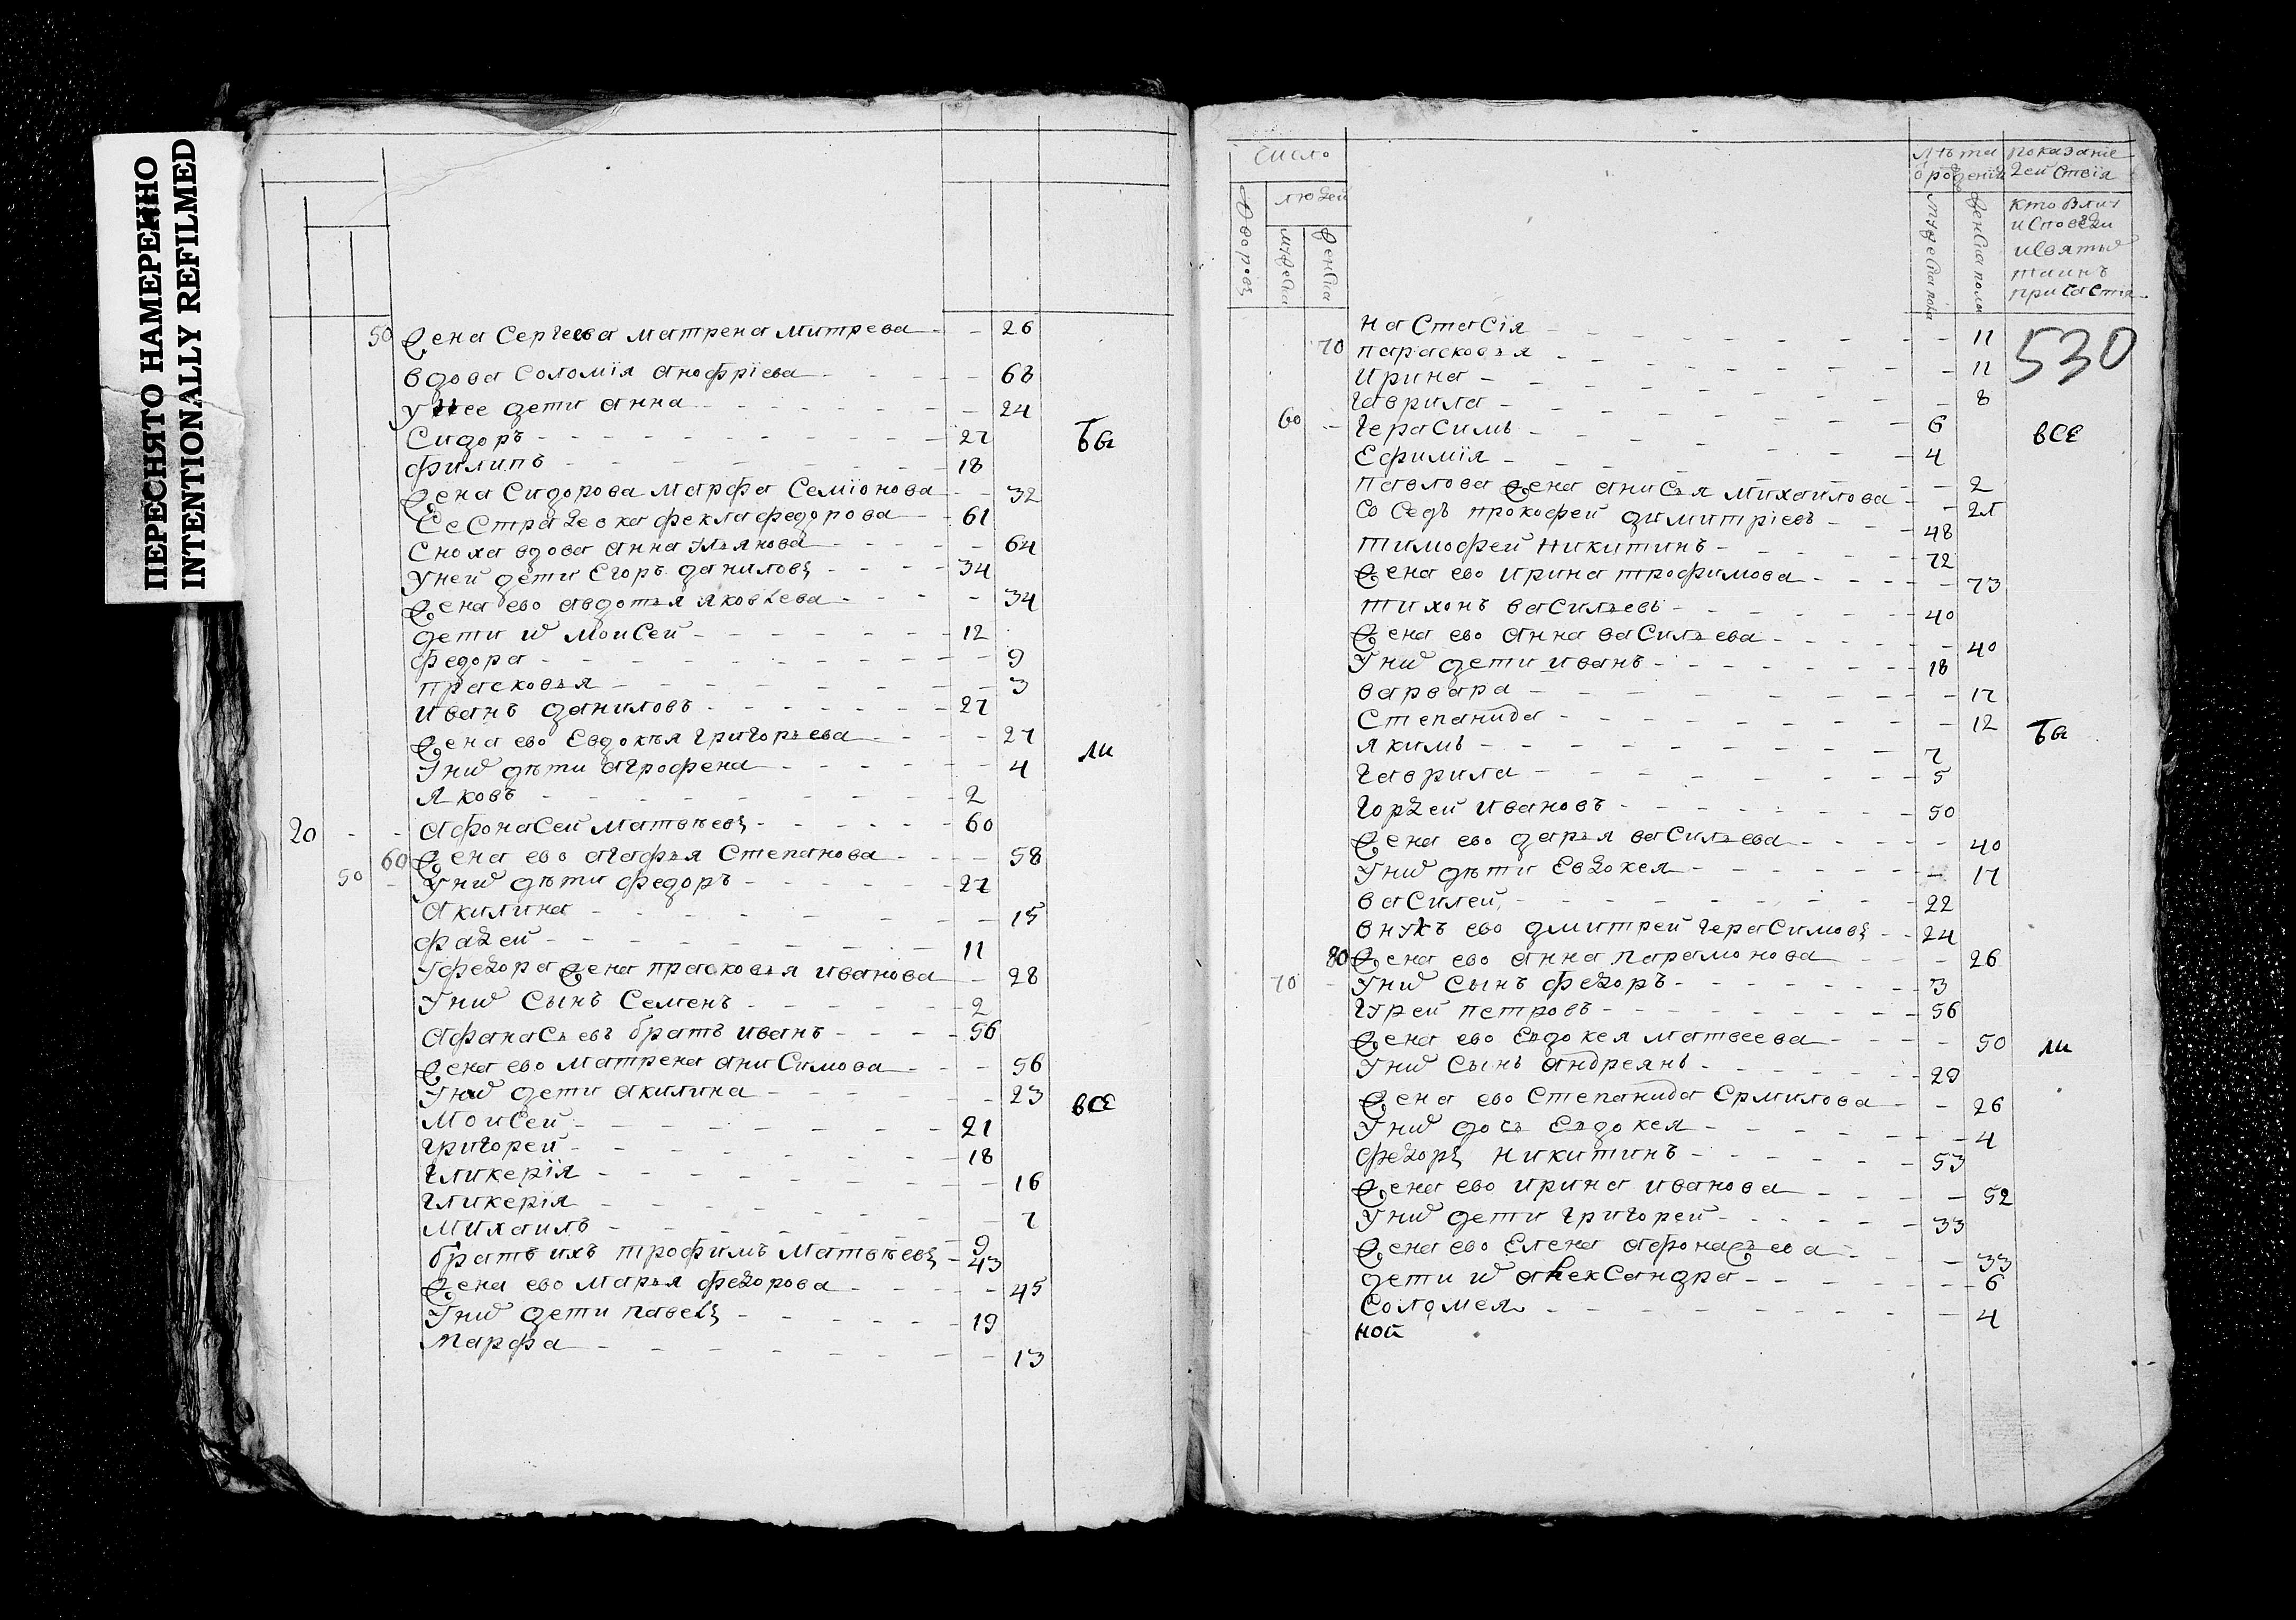 ПЕРЕСНЯТО НАМЕРЕННО
INTENTIONALLY REFILMED
50 жена Сергеева матрена митрева 26
вдова Соломїя анофрїева 68
у нее дети анна 24
Сидоръ 27
филипъ 18
жена Сидорова марфа Семїонова 32
Ее Страдевка фекла федорова 61
Сноха вдова анна ульянова 64
Уней дети Егоръ даниловъ 34
жена ево авдотья яковлева 34
дети их моисей 12
федора 9
прасковья 3
иванъ даниловъ 27
жена ево Евдокѣя григорьева 27
Уних дѣти аграфена 4
яковъ 2
20 афонасей матвѣевъ 60
60 жена ево агафья Степанова 58
50 Уних дѣти федоръ 27
акилина 15
фадей 11
Уфедора жена прасковья иванова 28
Уних сынъ Семенъ 2
афанасьевъ братъ иванъ 56
жена ево матрена анисимова 56
Уних дети акилина 23
моисей 21
григорей 18
гликерїя 16
гликерїя 7
михаилъ 9
братъ ихъ трофимъ матвѣевъ 43
жена ево марья федорова 45
Уних дети павелъ 19
марфа 13
бы
ли
все
Число
людей
дворовъ
мужеска
женска
лѣта
ѿ рожденїя
мужеска пола
женска пола
показанїе
действїя
кто был у
исповѣди
и святых
таинъ
причастїя
530
настасїя 11
70 парасковья 11
ирина 8
гаврила 6
60 герасимъ 4
Ефимїя 2
павлова жена анисья михаилова 21
Соседъ прокофей димитрїевъ 48
тимофей никитинъ 72
жена ево ирина трофимова 73
тихонъ васильевъ 40
жена ево анна васильева 40
Уних дети иванъ 18
варвара 17
Степанида 12
якимъ 7
гаврила 5
гордей ивановъ 50
жена ево дарья васильева 40
Уних дѣти Евдокея 17
василей 22
внукъ ево дмитрей герасимовъ 24
80 жена ево анна парамонова 26
70 Уних сынъ федоръ 3
гурей петровъ 56
жена ево Евдокея матвеева 50
Уних сынъ андреянъ 29
жена ево Степанида Ермилова 26
Уних дочь Евдокея 4
федоръ никитинъ 53
жена ево ирина иванова 52
Уних дети григорей 33
жена ево Елена афонасьева 33
дети их александра 6
Соломея 4
ной
все
бы
ли